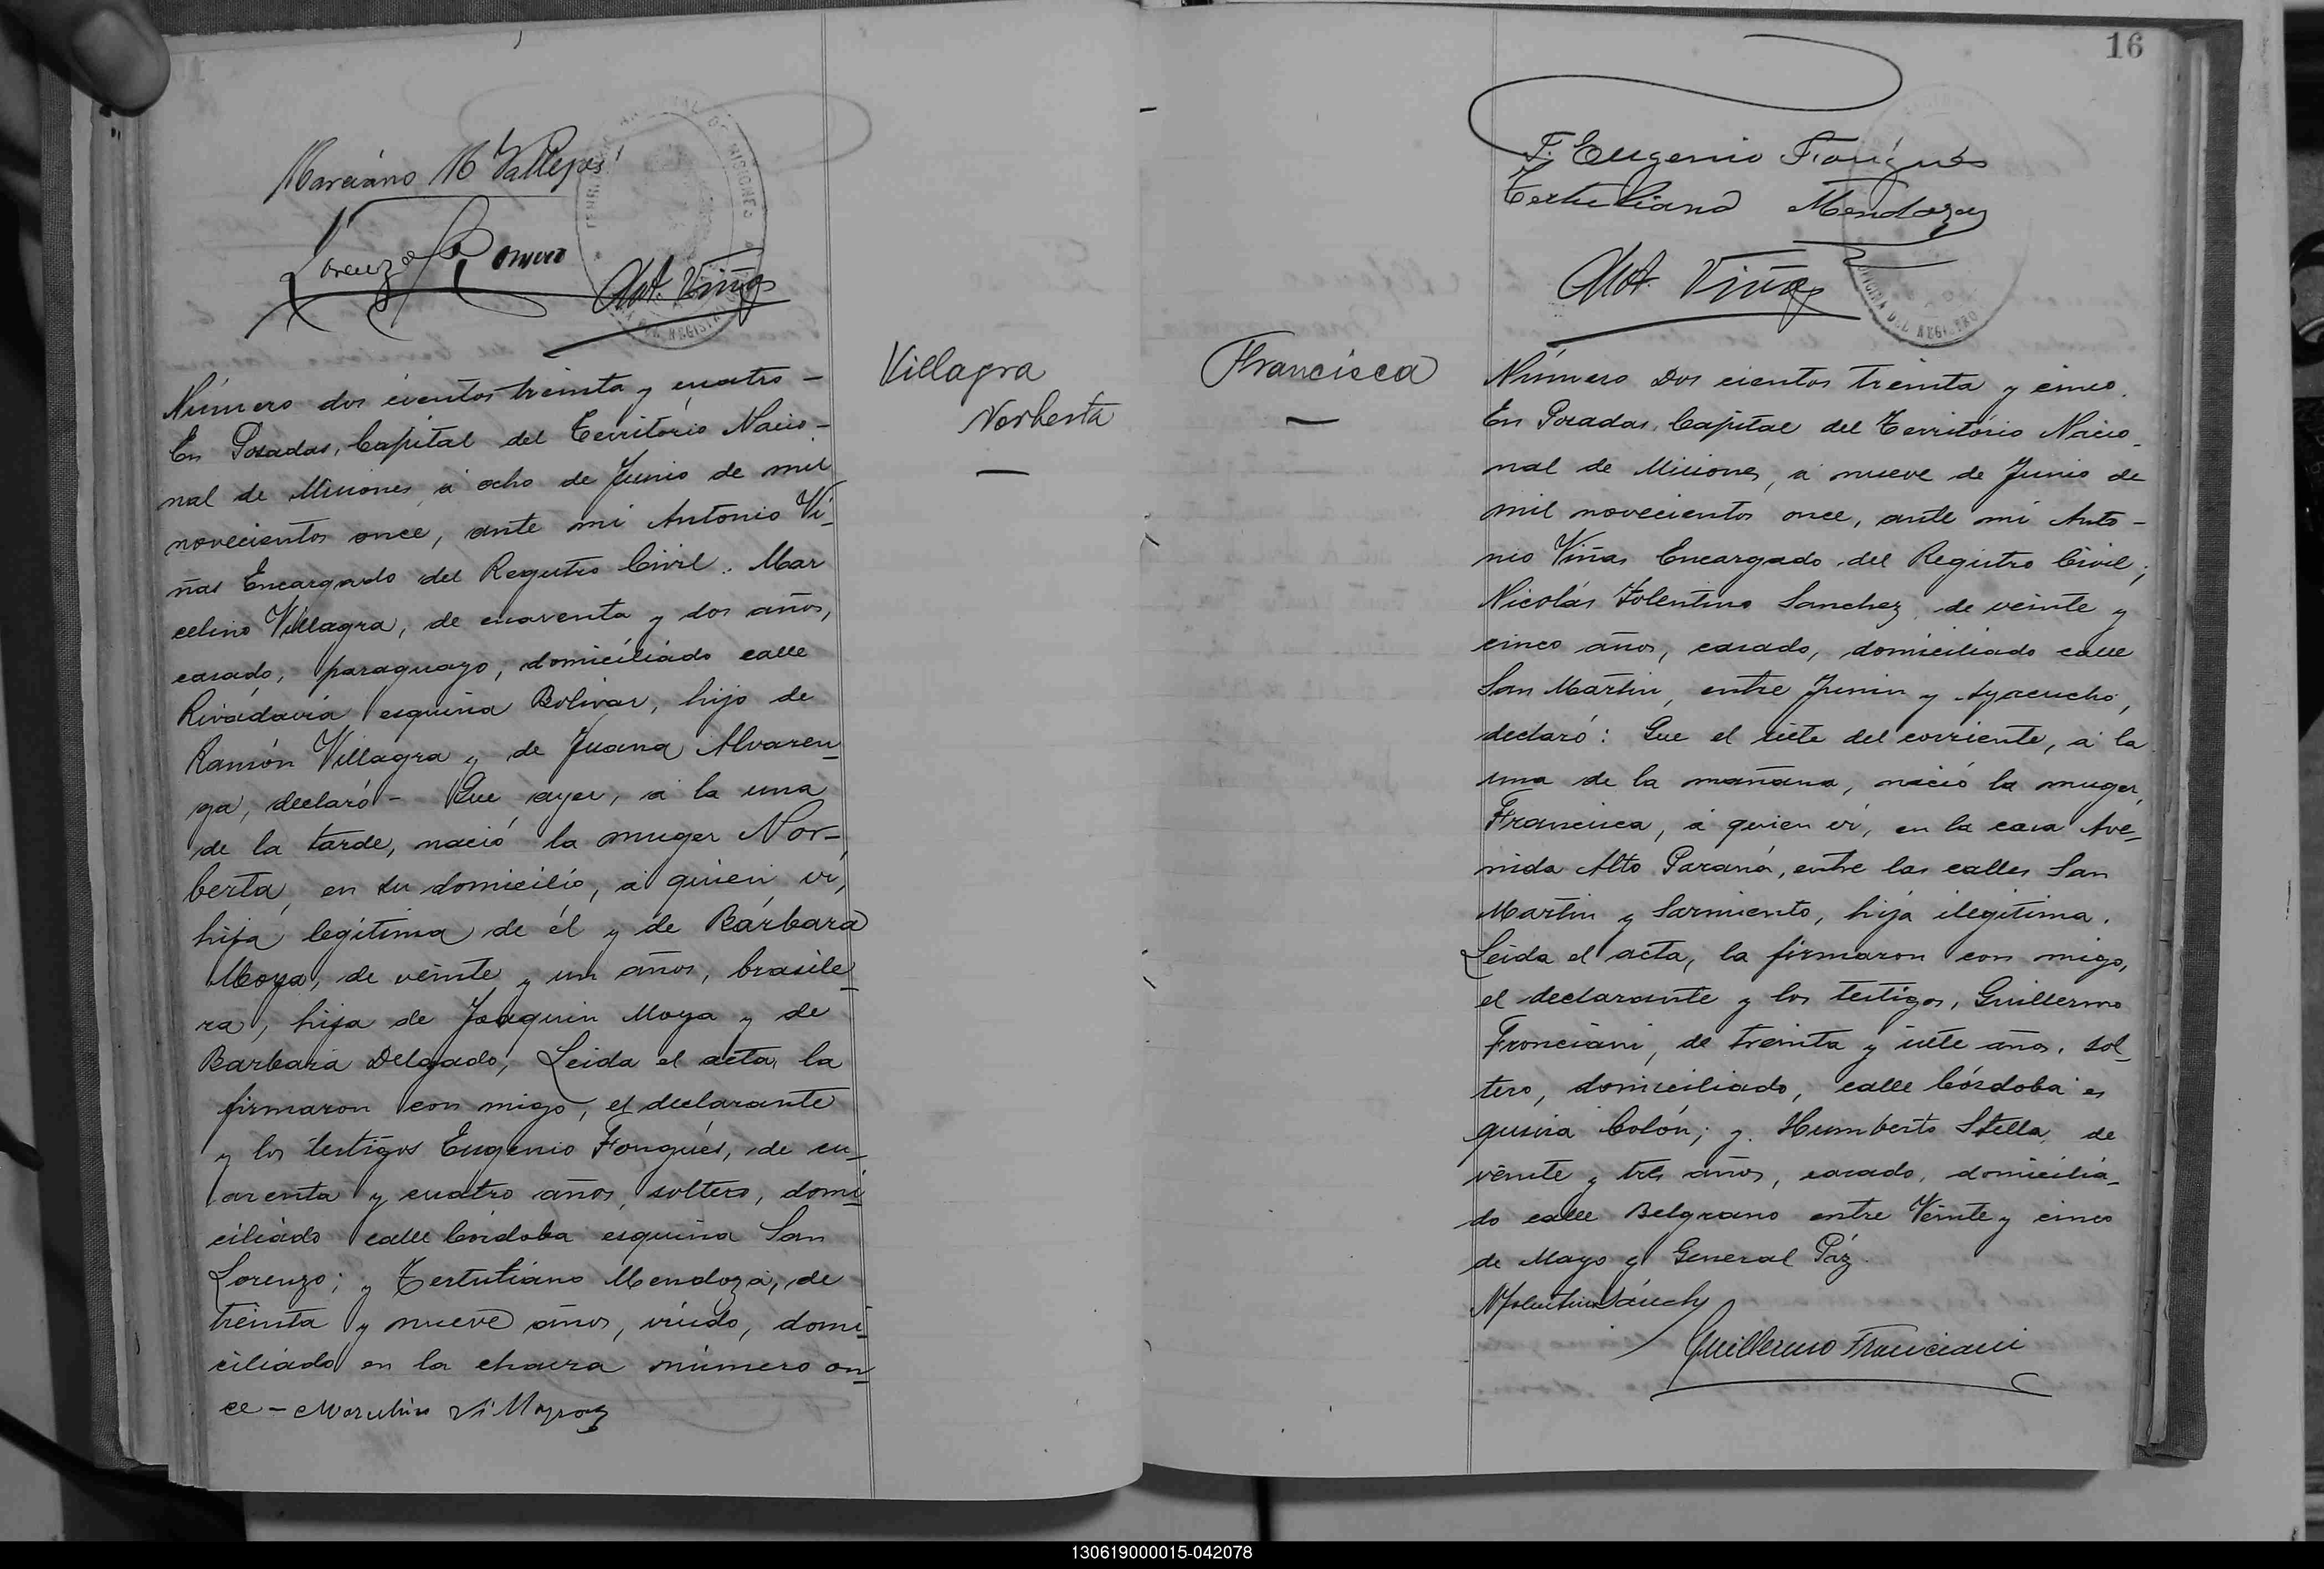 Marciano M Vallejos
Lorenzo Romero
Ant. Viñas
Número dos cientos treinta y cuatro –
En Posadas, Capital del Territorio Nacio-
nal de Misiones, á ocho de Junio de mil
novecientos once, ante mi Antonio Vi-
ñas Encargado del Registro Civil. Mar
celino Villagra, de cuarenta y dos años,
casado, paraguayo, domiciliado calle
Rivadavia esquina Bolivar, hijo de
Ramón Villagra y de Juana Alvaren-
ga, declaró – Que ayer, á la una
de la tarde, nació la muger Nor-
berta, en su domicilio, á quien vi,
hija legítima de él y de Bárbara
Moya, de veinte y un años, brasile-
ra, hija de Joaquin Moya y de
Barbara Delgado, Leida el acta, la
firmaron con migo, el declarante
y los testigos Eugenio Fongués, de cu-
arenta y cuatro años, soltero, domi-
ciliado calle Córdoba esquina San
Lorenzo; y Tertuliano Mendoza, de
treinta y nueve años, viudo, domi-
ciliado en la chacra número on-
ce –
Villagra
Norberta
—
Francisca
—
16
F. Eugenio Fongués
Tertuliano Mendoza
Ant. Viñas
OFICINA DEL REGISTRO
Número Dos cientos treinta y cinco.
En Posadas, Capital del Territorio Nacio-
nal de Misiones, á nueve de Junio de
mil novecientos once, ante mi Anto-
nio Viñas Encargado del Registro Civil;
Nicolás Tolentino Sanchez, de veinte y
cinco años, casado, domiciliado calle
San Martin, entre Junin y Ayacucho,
declaró: Que el siete del corriente, á la
una de la mañana, nació la muger,
Francisca, á quien vi, en la casa Ave-
nida Alto Paraná, entre las calles San
Martin y Sarmiento, hija ilegitima.
Leida el acta, la firmaron con migo,
el declarante y los testigos, Guillermo
Fronciani, de treinta y siete años, sol-
tero, domiciliado, calle Córdoba es
quina Colón; y Humberto Stella, de
veinte y tres años, casado, domicilia-
do calle Belgrano entre Veinte y cinco
de Mayo y General Páz.
Guillermo Franciani
130619000015-042078